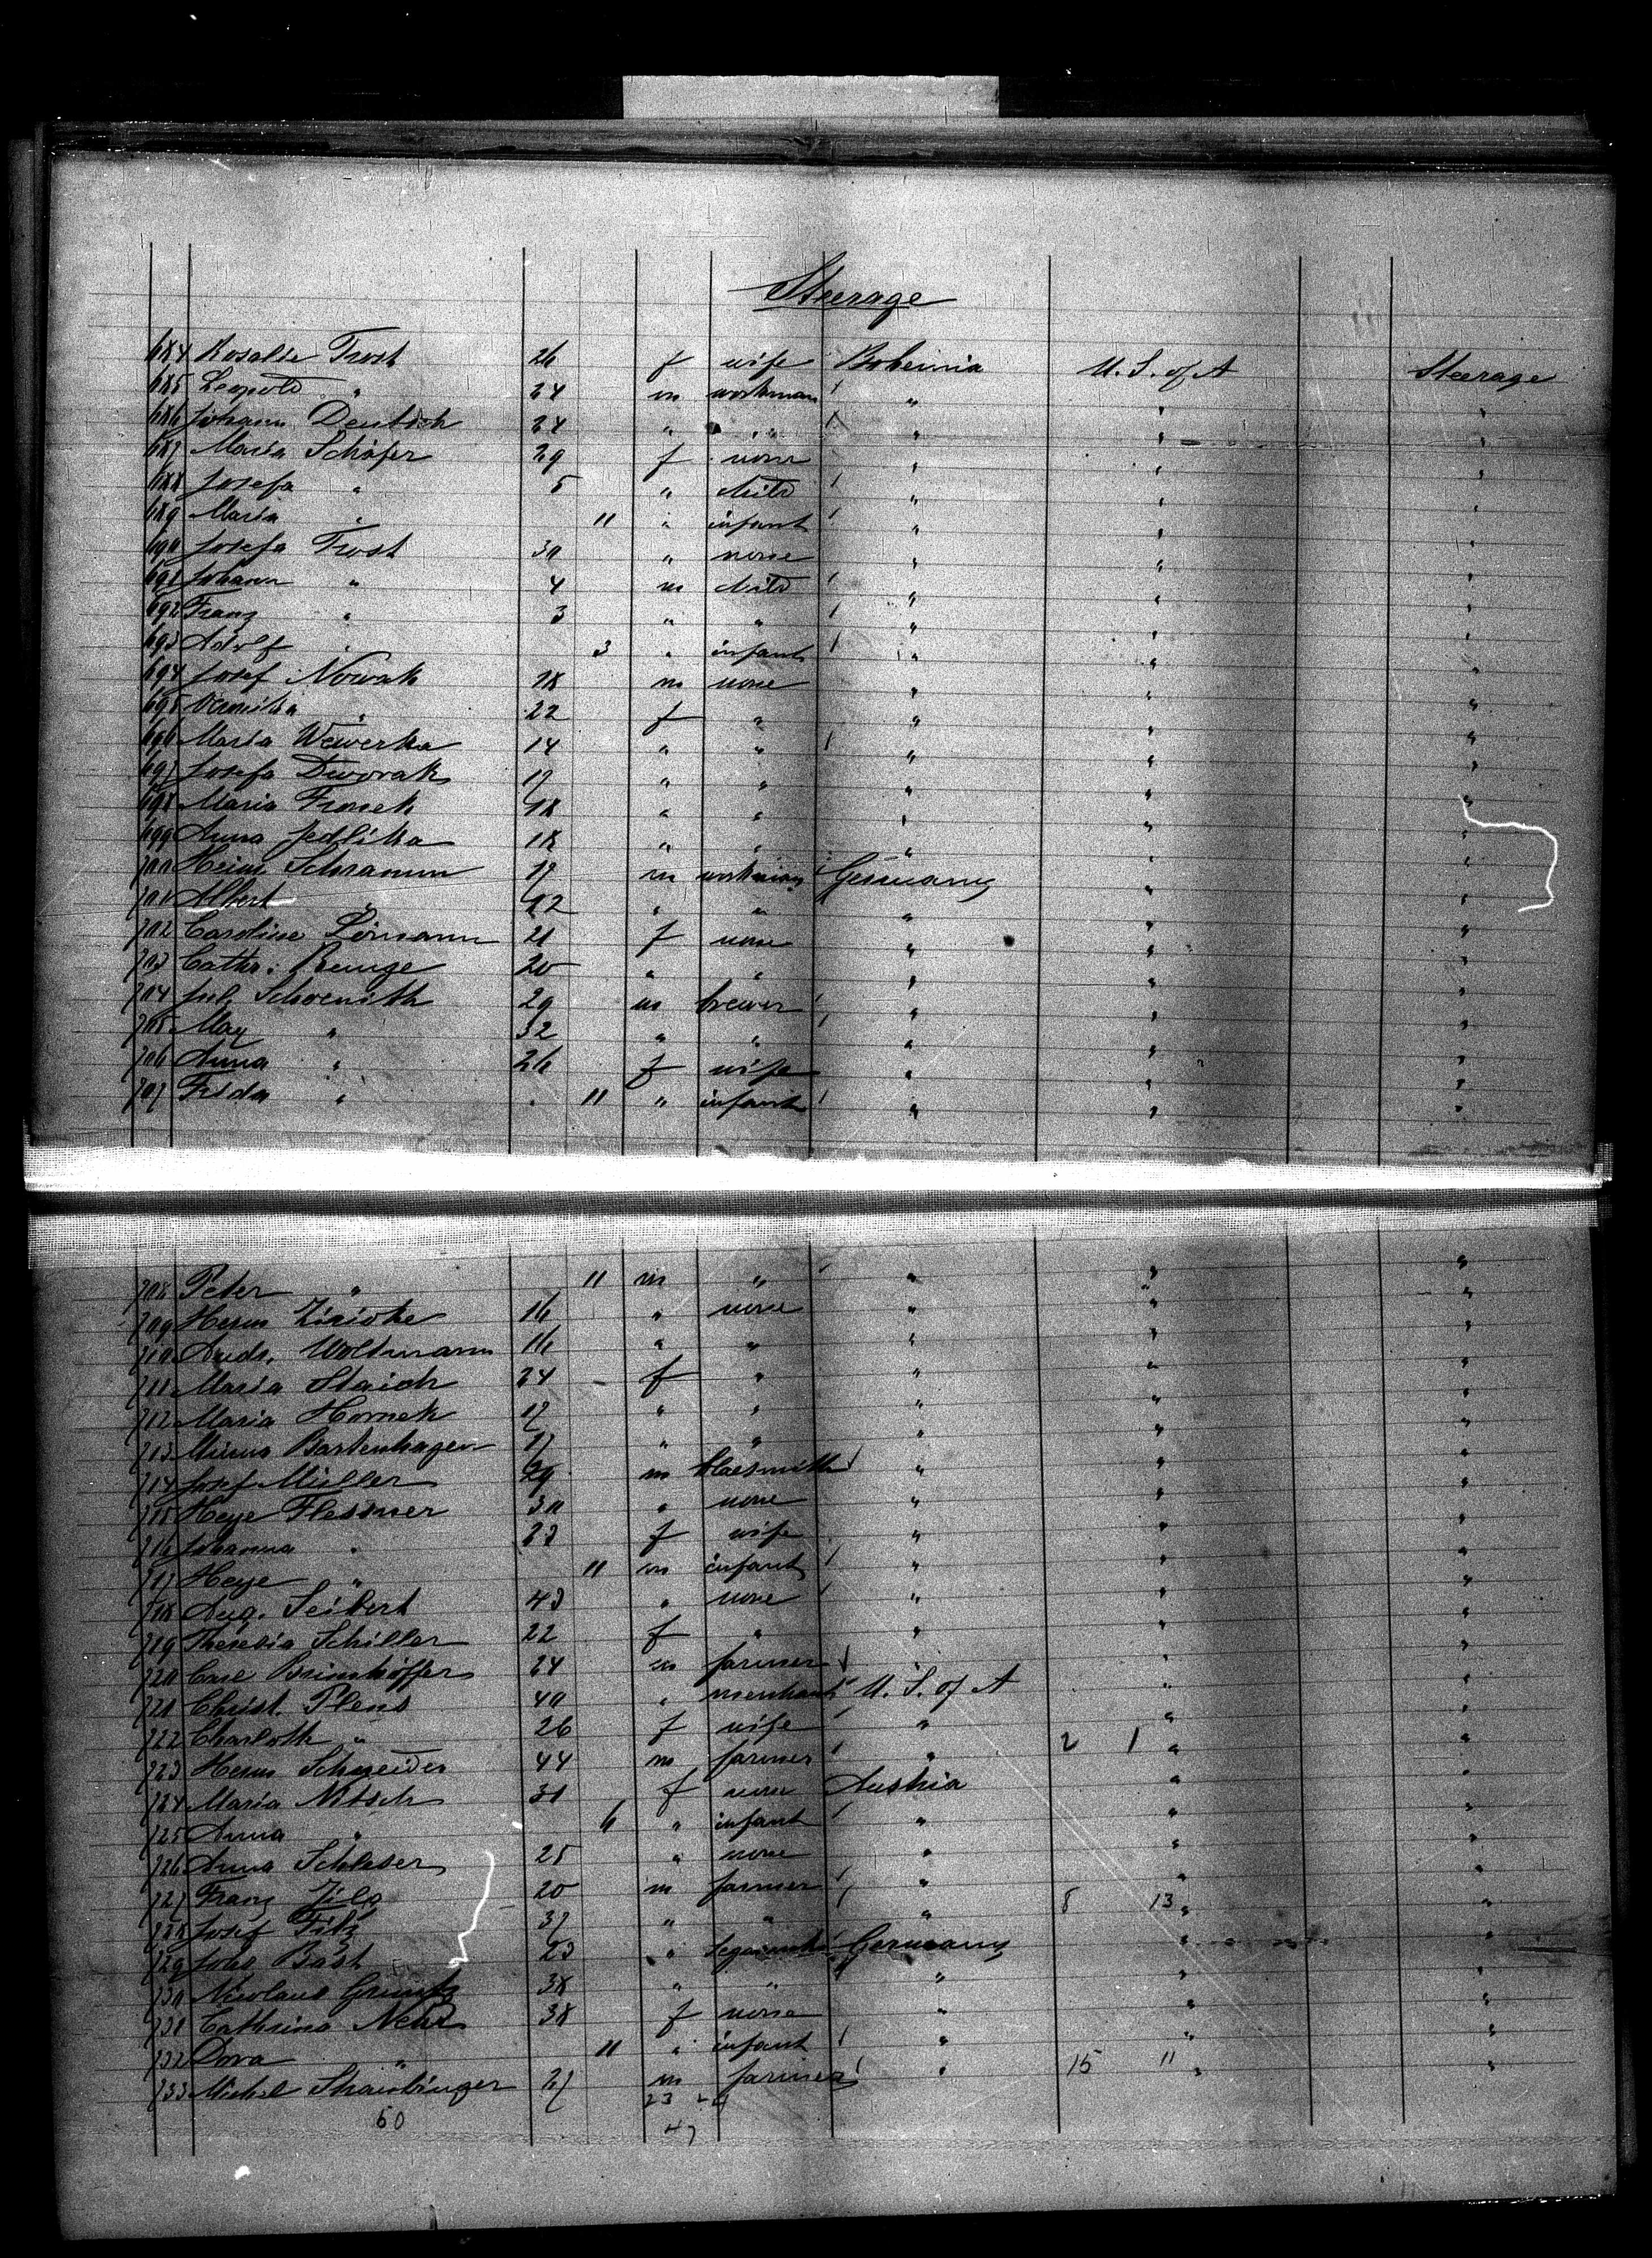 Steerage
684 Rosalie Trost 26 f wife Bohemia U. S. of A Steerage
685 Leopold " 24 m workman " " "
686 Johann Deutsch 24 " " " " "
687 Maria Schäfer 29 f none " " "
688 Josefa " 5 " child " " "
689 Maria " 11 " infant " " "
690 Josefa Trost 30 " none " " "
691 Johann " 4 m child " " "
692 Franz " 3 " " " " "
693 Adolf " 3 " infant " " "
694 Josef Nowak 18 m none " " "
695 " 22 f " " " "
696 Maria Wewerka 14 " " " " "
697 Josefa Dworak 17 " " " " "
698 Maria 18 " " " " "
699 Anna Jedlika 18 " " " " "
700 Heinr. Schramm 17 m workman Germany " "
701 Albert " 22 " " " " "
702 Caroline Lömann 21 f none " " "
703 Cathr. 20 " " " " "
704 Jul. Schoenith 29 m brewer " " "
705 Max " 32 " " " " "
706 Anna " 26 f wife " " "
707 Frida " 11 " infant " " "
708 Peter " 11 m " " " "
709 Herm 16 " none " " "
710 Woltmann 16 " " " " "
711 Maria Staich 24 f " " " "
712 Maria Hornek 17 " " " " "
713 Minna Bartenhagen 17 " " " " "
714 Josef Müller 29 m blacsmith " " "
715 Heye Flessner 30 " none " " "
716 Johanna " 23 f wife " " "
717 Heye " 11 m infant " " "
718 Aug. Seibert 43 " none " " "
719 Theresia Schiller 22 f " " " "
720 Carl 24 m farmer " " "
721 Christ. Plens 40 " merchant U. S. of A " "
722 Charloth " 26 f wife " " "
723 Herm Schneider 44 m farmer " 2 1 " "
724 Maria Nitsch 31 f none Austria " "
725 Anna " 6 " infant " " "
726 Anna Schleser 25 " none " " "
727 Franz 20 m farmer " " "
728 Josef Filz 37 " " " 8 13 " "
729 Bast 23 " Germany " "
730 Nicolaus 38 " " " " "
731 Cathrina 38 f none " " "
732 Dora " 11 " infant " " "
733 Michel Straubinger 27 m farmer " 15 11 " "
50 23
47